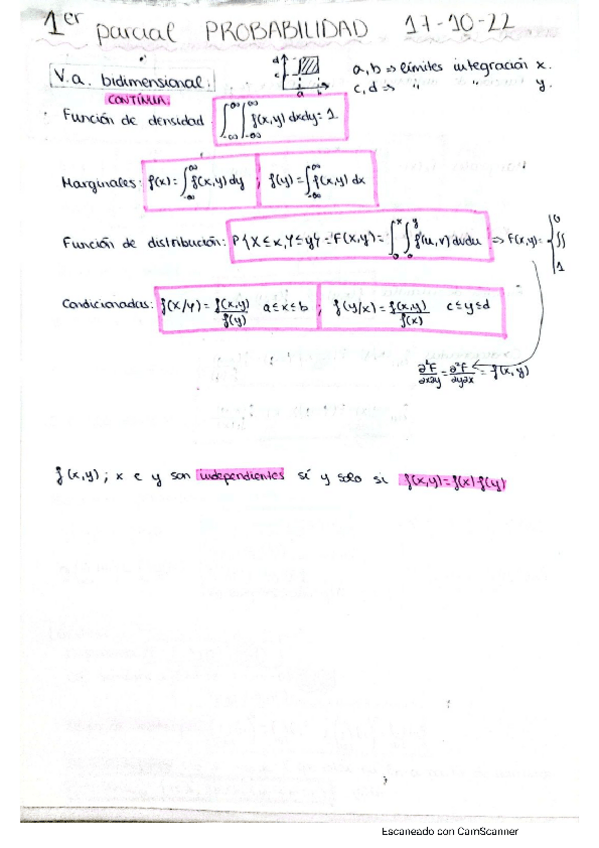 1er parcial PROBABILIDAD 17-10-22
V.a. bidimensional:
CONTINUA.
d
c
a b
a, b => límites integración x.
c, d => " " y.
Función de densidad ∫_{-∞}^{∞} ∫_{-∞}^{∞} f(x,y) dxdy = 1
Marginales: f(x) = ∫_{-∞}^{∞} f(x,y) dy ; f(y) = ∫_{-∞}^{∞} f(x,y) dx
Función de distribución: P{X ≤ x, Y ≤ y} = F(x,y) = ∫_0^x ∫_0^y f(u,v) dvdu => F(x,y) = { 0 ∫∫ 1
Condicionadas: f(x/y) = f(x,y)/f(y) a ≤ x ≤ b ; f(y/x) = f(x,y)/f(x) c ≤ y ≤ d
∂²F/∂x∂y = ∂²F/∂y∂x = f(x,y)
f(x,y) ; x e y son independientes sí y solo si f(x,y) = f(x) f(y)
Escaneado con CamScanner